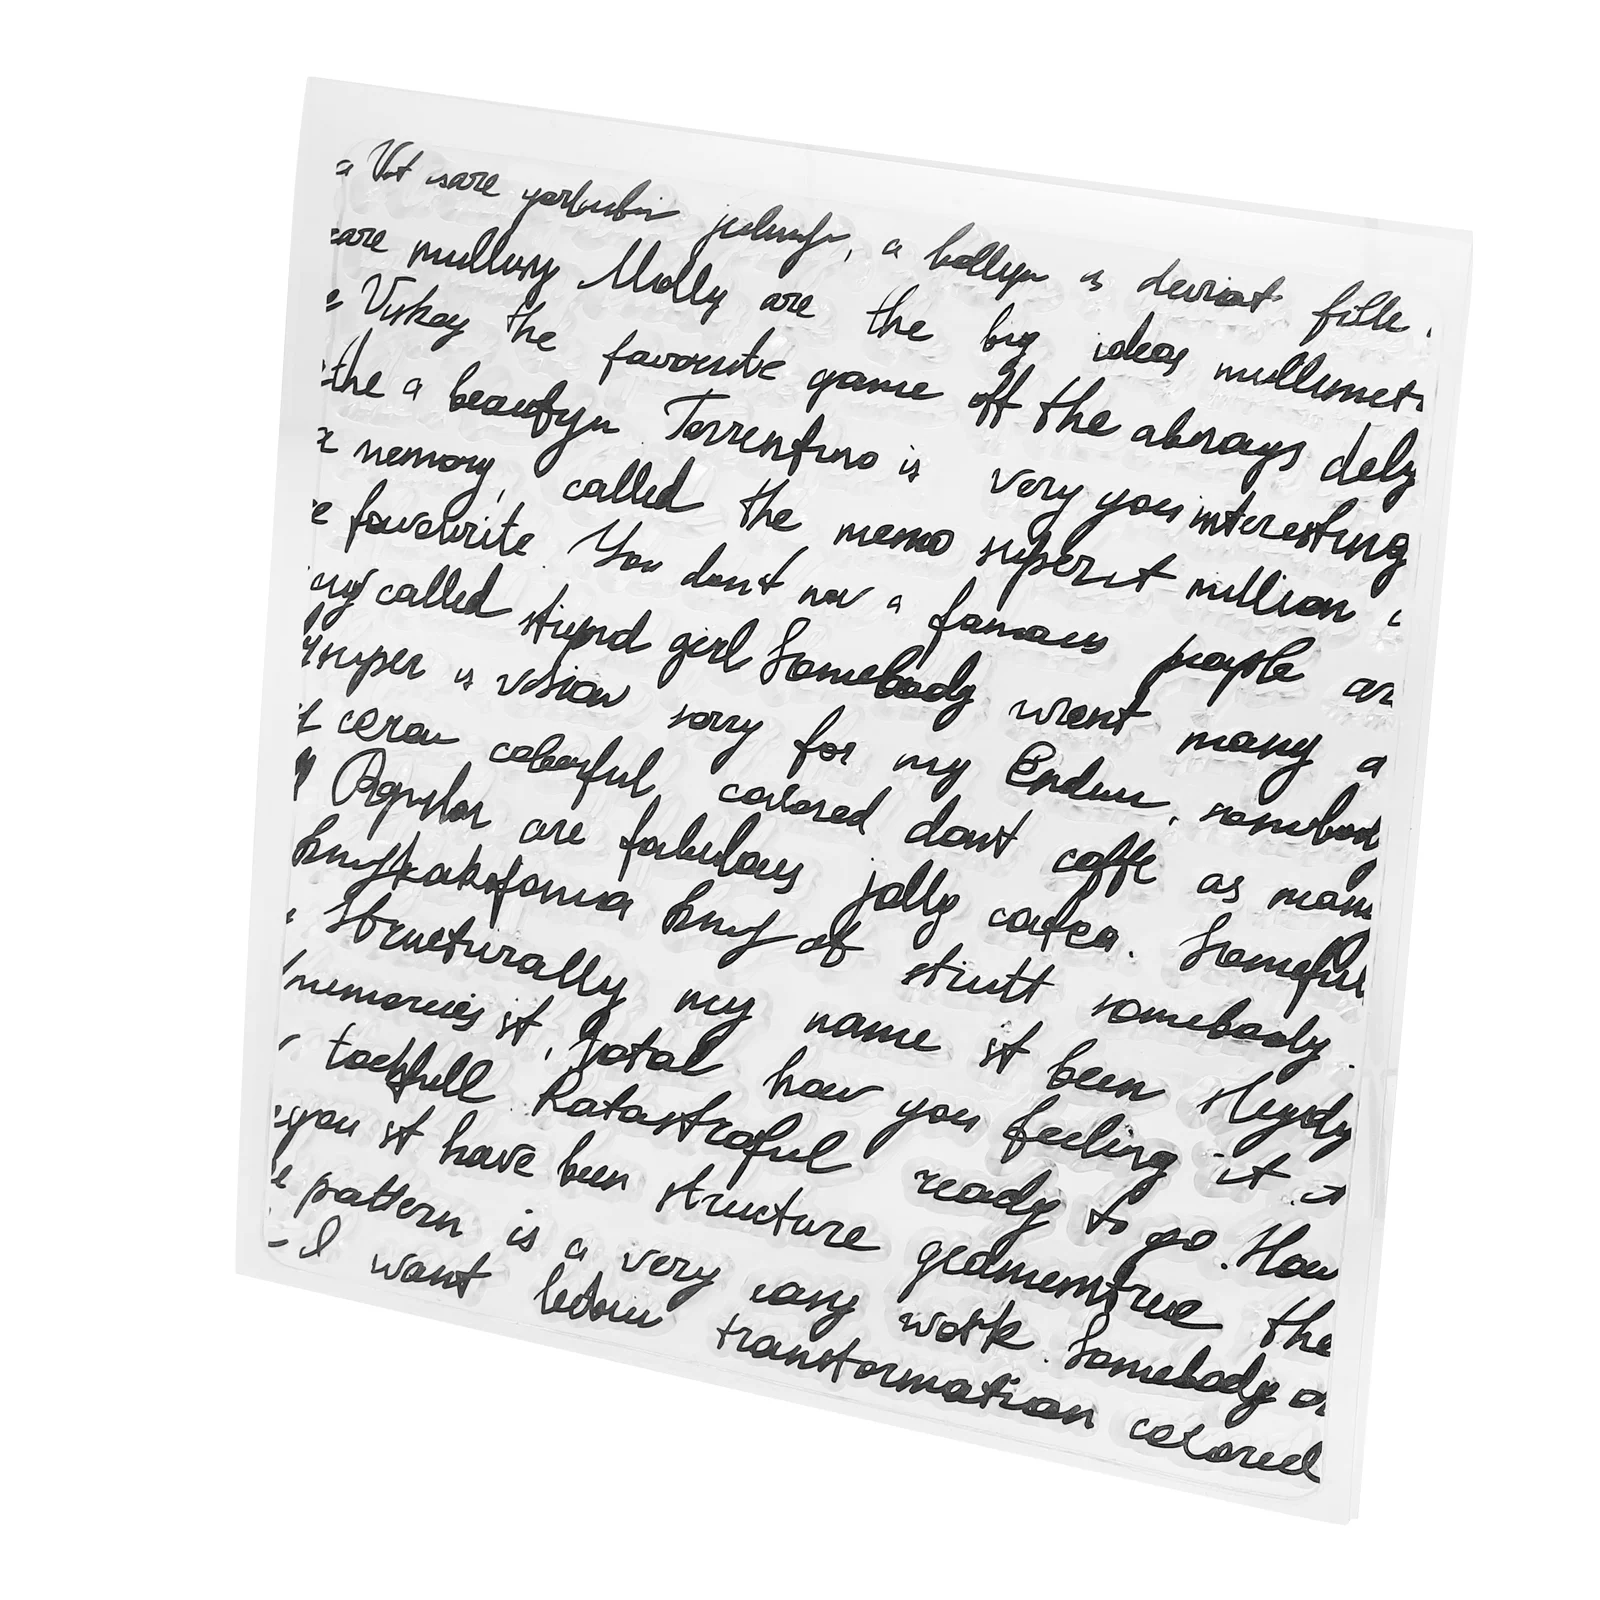 a Vot sare a is deviat fille.
care mullury Molly are the big ideas mullimet
e Viskay the favourite game off the always dely
the a beautyu Torrentino is very you interesting
memory, called the memo superit million
e favourite. You dont nov a famous people ar
called stupid girl Somebody wront many a
super is vision sorry for my Endur, somebody
ceron coborful, covored dont coffe as mam
Popular are fabulous jolly coofea. Someful
kakofonia of strutt somebody.
Structurally my name it been
memories it, total how you feeling it it
tockfull Katastroful ready to go. How
you it have been structure geomemtrue the
e pattern is a very easy work. Somebody or
I want transformation colored